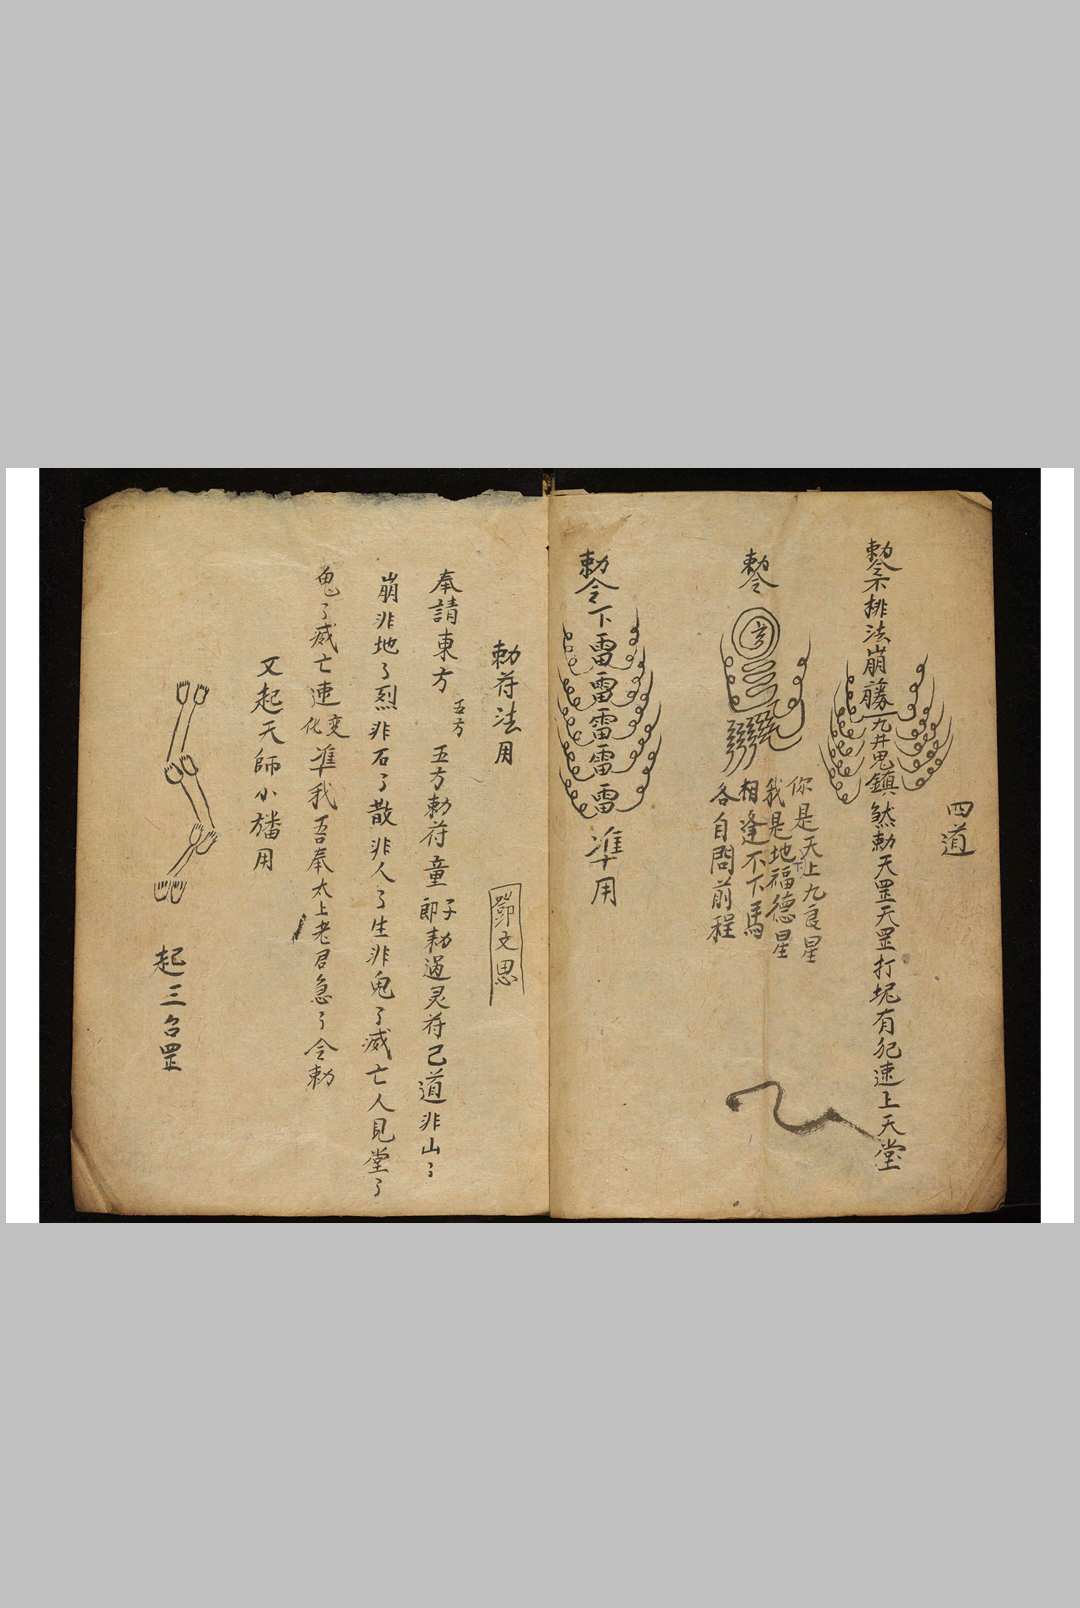 四道
勅令排法崩騰九井鬼鎮煞勅天罡天罡打坭有犯速上天堂
勅令
你是天上九良星
我是地福德星
相逢不下馬
各自問前程
勅令下雷雷雷雷雷準用
勅符法用
鄧文思
奉請東方五方五方勅符童子郎勅過灵符己道非山々
崩非地々烈非石々散非人々生非鬼々滅亡人見堂々
鬼々滅亡速变化準我吾奉太上老君急々令勅
又起天師小旙用
起三台罡